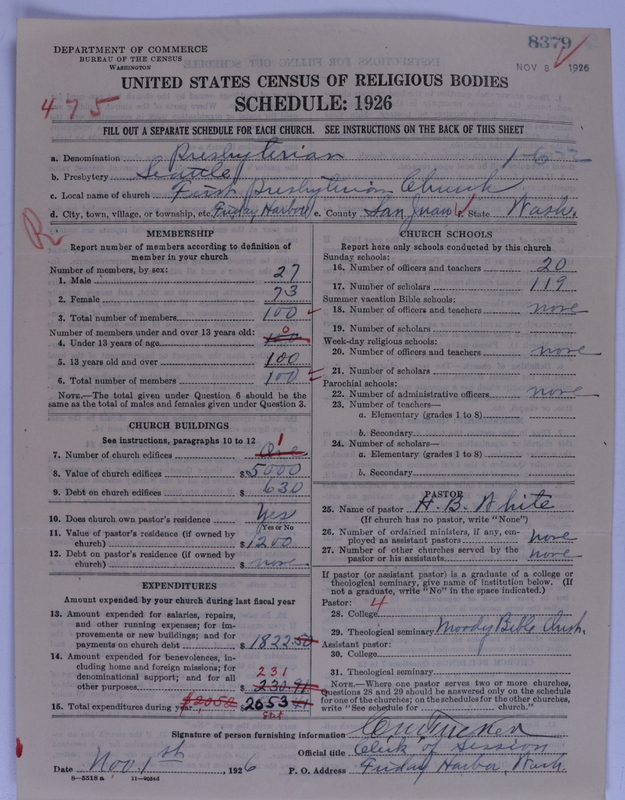 8379
DEPARTMENT OF COMMERCE
BUREAU OF THE CENSUS
WASHINGTON
NOV 8 1926
UNITED STATES CENSUS OF RELIGIOUS BODIES
475
SCHEDULE: 1926
FILL OUT A SEPARATE SCHEDULE FOR EACH CHURCH. SEE INSTRUCTIONS ON THE BACK OF THIS SHEET
a. Denomination Presbyterian 1-6-2
b. Presbytery Seattle
c. Local name of church First Presbyterian Church
d. City, town, village, or township, etc. Friday Harbor e. County San Juan f. State Wash.
R
MEMBERSHIP
Report number of members according to definition of member in your church
Number of members, by sex:
1. Male 27
2. Female 73
3. Total number of members 100
Number of members under and over 13 years old:
4. Under 13 years of age 0
5. 13 years old and over 100
6. Total number of members 100
NOTE.—The total given under Question 6 should be the same as the total of males and females given under Question 3.
CHURCH BUILDINGS
See instructions, paragraphs 10 to 12
7. Number of church edifices One 1
8. Value of church edifices $5000
9. Debt on church edifices $ 630
10. Does church own pastor's residence Yes
Yes or No
11. Value of pastor's residence (if owned by church) $1200
12. Debt on pastor's residence (if owned by church) $ none
EXPENDITURES
Amount expended by your church during last fiscal year
13. Amount expended for salaries, repairs, and other running expenses; for improvements or new buildings; and for payments on church debt $1822 50
14. Amount expended for benevolences, including home and foreign missions; for denominational support; and for all other purposes $ 230.91 231
15. Total expenditures during year $ 2053 41
CHURCH SCHOOLS
Report here only schools conducted by this church
Sunday schools:
16. Number of officers and teachers 20
17. Number of scholars 119
Summer vacation Bible schools:
18. Number of officers and teachers none
19. Number of scholars
Week-day religious schools:
20. Number of officers and teachers none
21. Number of scholars
Parochial schools:
22. Number of administrative officers none
23. Number of teachers—
a. Elementary (grades 1 to 8)
b. Secondary
24. Number of scholars—
a. Elementary (grades 1 to 8)
b. Secondary
PASTOR
25. Name of pastor H. B. White
(If church has no pastor, write "None")
26. Number of ordained ministers, if any, employed as assistant pastors none
27. Number of other churches served by the pastor or his assistants none
If pastor (or assistant pastor) is a graduate of a college or theological seminary, give name of institution below. (If not a graduate, write "No" in the space indicated.)
Pastor: 4
28. College
29. Theological seminary Moody Bible Inst.
Assistant pastor:
30. College
31. Theological seminary
NOTE.—Where one pastor serves two or more churches, Questions 28 and 29 should be answered only on the schedule for one of the churches; on the schedules for the other churches, write "See schedule for church."
Signature of person furnishing information
Official title Clerk of Session
Date Nov 1st, 1926 P. O. Address Friday Harbor, Wash.
8—5518 a